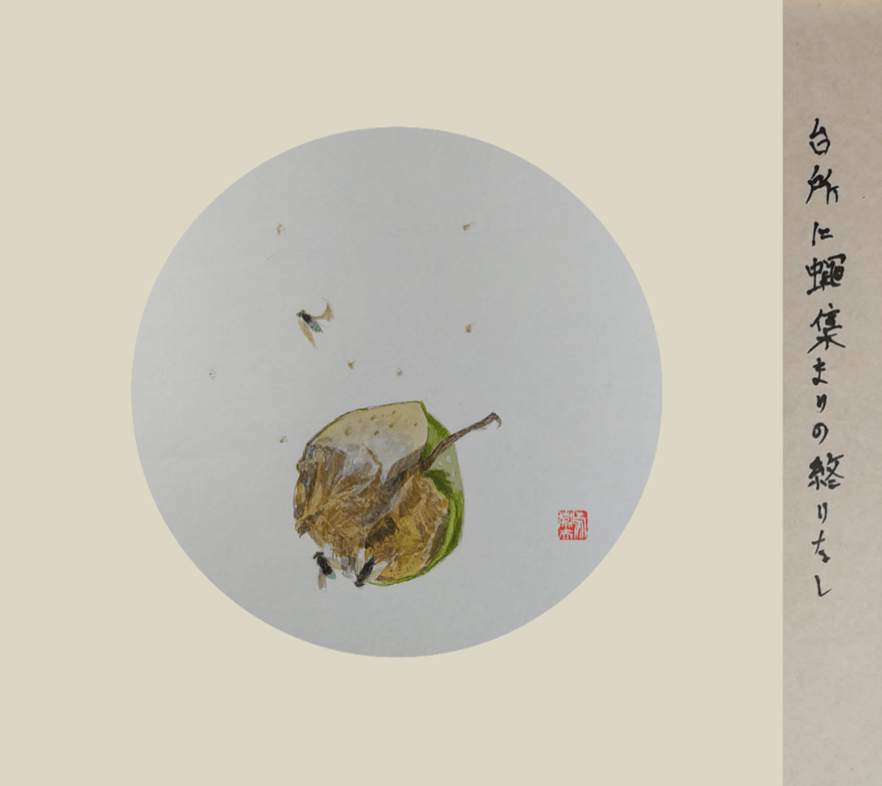 台所に蠅集まりの終りなし